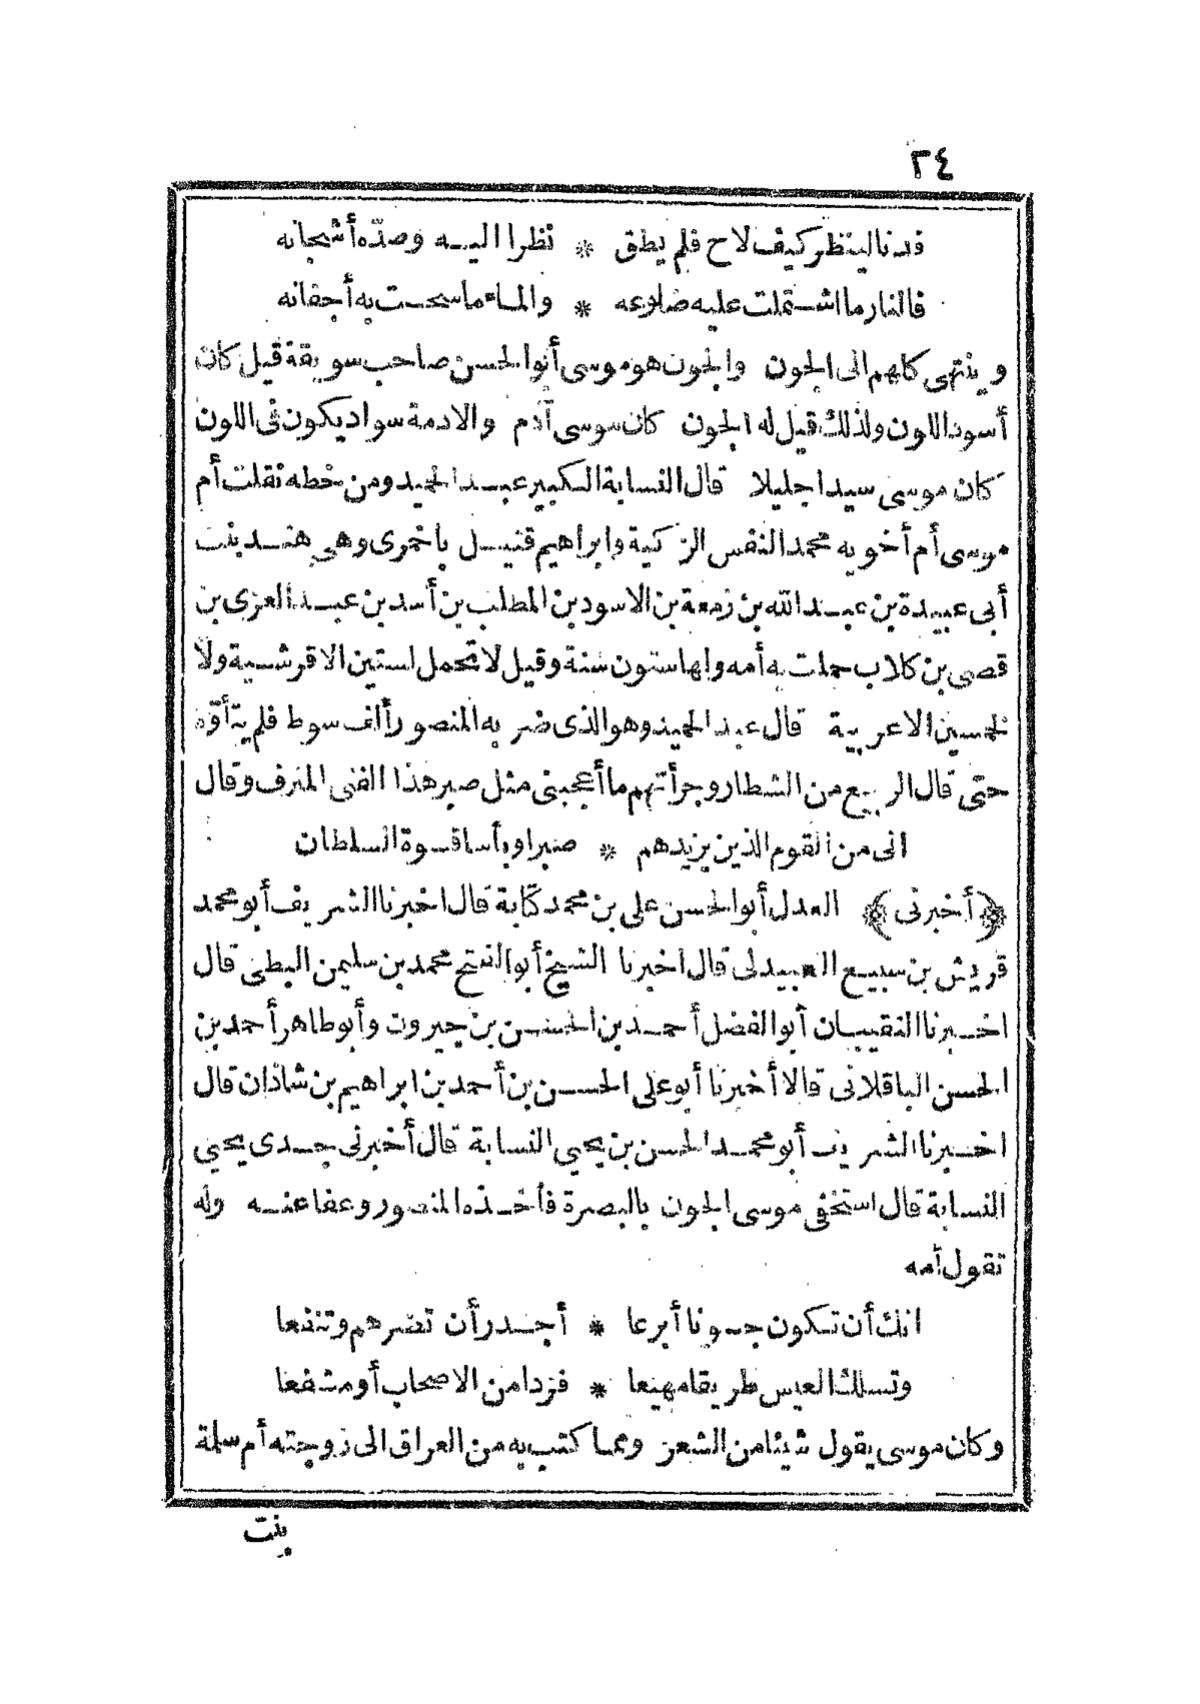 ٣٤
فدنا لينظر كيف لاح فلم يطق * نظرا اليه وصدّه أشجانه
فالنار ما اشتملت عليه ضلوعه * والماء ما سحت به أجفانه
وينتهى كلهم الى الجون والجون هو موسى أبوا لحسن صاحب سويقة قيل كان
أسود اللون ولذلك قيل له الجون كان موسى آدم والادمة سواد يكون فى اللون
كان موسى سيدا جليلا قال النسابة الكبير عبد الحميد ومن خطه نقلت أم
موسى أم أخويه محمد النفس الزكية وابراهيم قتيل باخمرى وهى هند بنت
أبى عبيدة بن عبد الله بن زمعة بن الاسود بن المطلب بن أسد بن عبد العزى بن
قصى بن كلاب حملت به أمه ولها ستون سنة وقيل لا تحمل لستين الا قرشية ولا
لخمسين الا عربية قال عبد الحميد وهو الذى ضربه المنصور ألف سوط فلم يتأوّه
حتى قال الربيع من الشطار وجرأتهم ما أعجبنى مثل صبر هذا الفتى المترف وقال
انى من القوم الذين يزيدهم * صبرا وبأسا قسوة السلطان
﴿أخبرنى﴾ العدل أبوا لحسن على بن محمد كتابة قال اخبرنا الشريف أبو محمد
قريش بن سبيع العبيدلى قال اخبرنا الشيخ أبو الفتح محمد بن سليمن البطى قال
اخبرنا النقيبان أبو الفضل أحمد بن الحسن بن خيرون وأبو طاهر أحمد بن
الحسن الباقلانى قالا أخبرنا أبو على الحسن بن أحمد بن ابراهيم بن شاذان قال
اخبرنا الشريف أبو محمد الحسن بن يحيى النسابة قال أخبرنى جدى يحيى
النسابة قال استخفى موسى الجون بالبصرة فأخذه المنصور وعفا عنه وله
تقول أمه
انك أن تكون جونا أبرعا * أجدر أن تضرهم وتنفعا
وتسلك العيس طريقا مهيعا * فردا من الاصحاب أو مشفعا
وكان موسى يقول شيئا من الشعر ومما كتب به من العراق الى زوجته أم سلمة
بنت